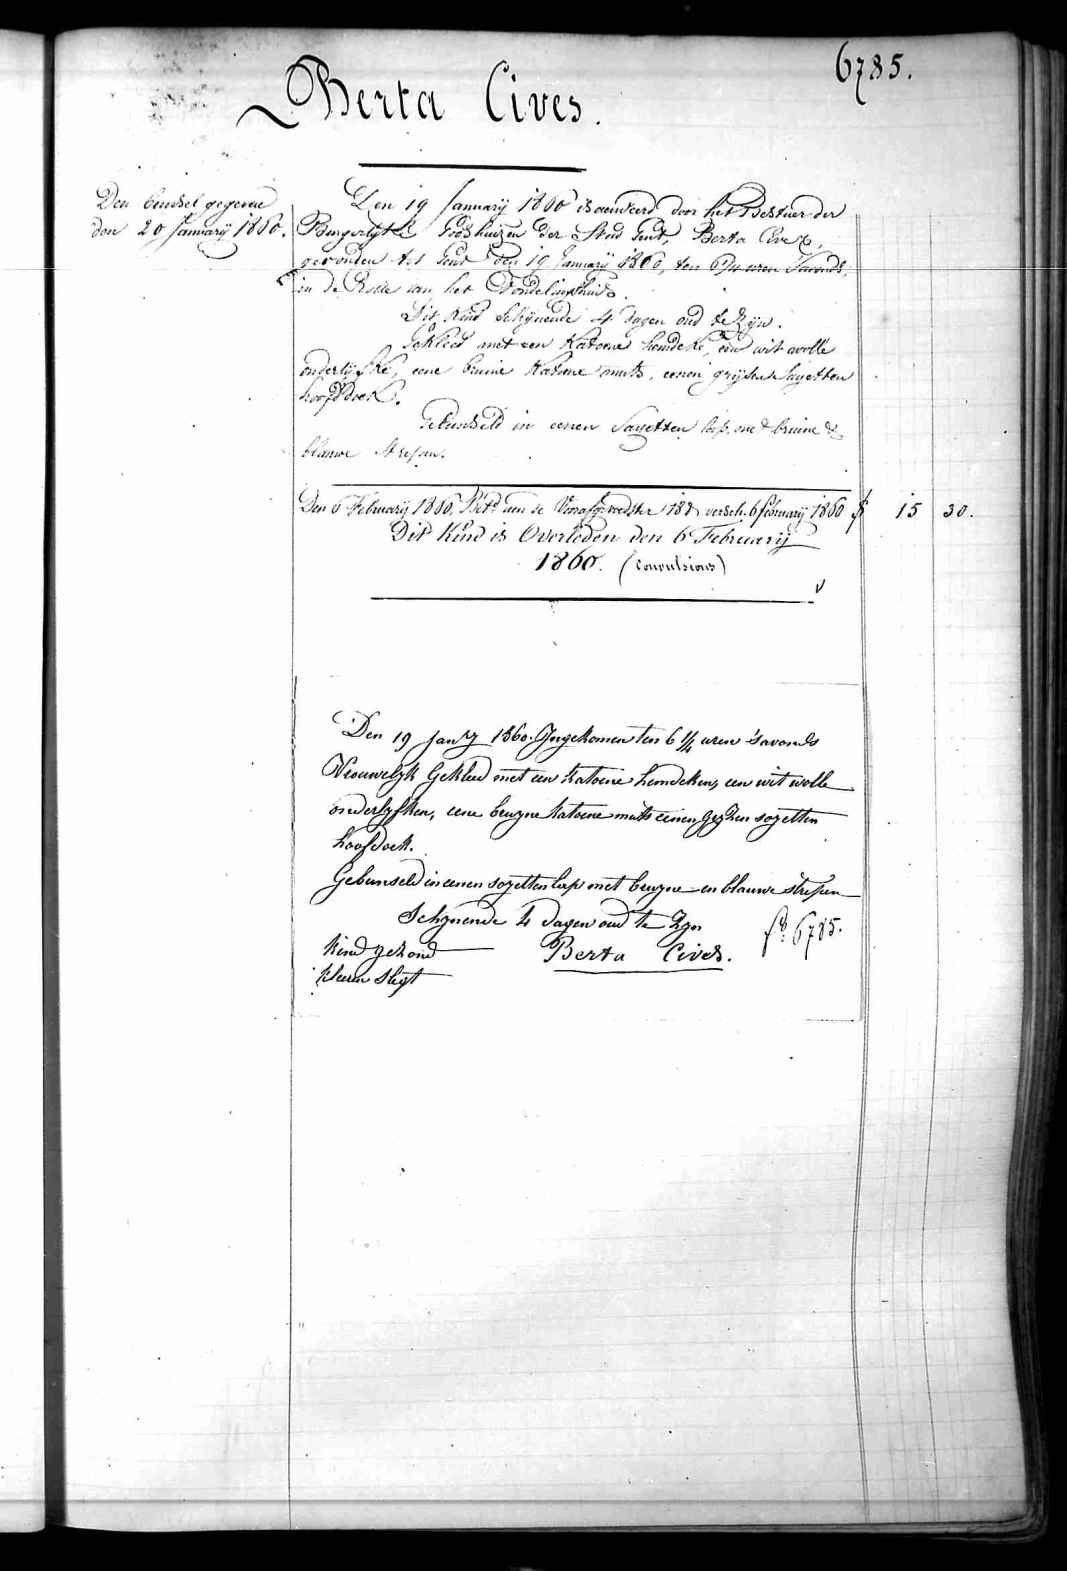 6785.
Berta Cives.
Den bundel gegeven
den 20 January 1860.
Den 19 January 1860 is aenveerd door het Bestuer der
Burgerlyke Godshuizen der Stad Gent, Berta Cives,
gevonden tot Gent den 19 January 1860, ten 6 1/4 uren 'Savonds,
in de Rolle van het Vondelinghuis.
Dit Kind schynende 4 dagen oud te zyn.
Gekleed met een Katoene hemdeke, een wit wolle
onderlyfke, eene bruine Katoene muts, eenen gryzen Sayetten
hoofddoek.
Gebunseld in eenen Sayetten lap, met bruine &
blauwe Strepen.
Den 6 February 1860, Bet.d aen de Voorafgevoedster 18 d versch. 6 february 1860 f 15 30.
Dit Kind is Overleden den 6 February
1860. (Convulsions)
Den 19 Jany 1860. Ingekomen ten 6 1/4 uren 'savonds
Vrouwelyk Gekleed met een katoene hemdeken, een wit wolle
onderlyfken, eene bruyne katoene muts eenen gryzen sayetten
hoofdoek.
Gebunseld in eenen sayetten lap met bruyne en blauwe strepen
Schynende 4 dagen oud te Zyn
f.o 6785.
Kind gezond Berta Cives.
kleeren Slegt